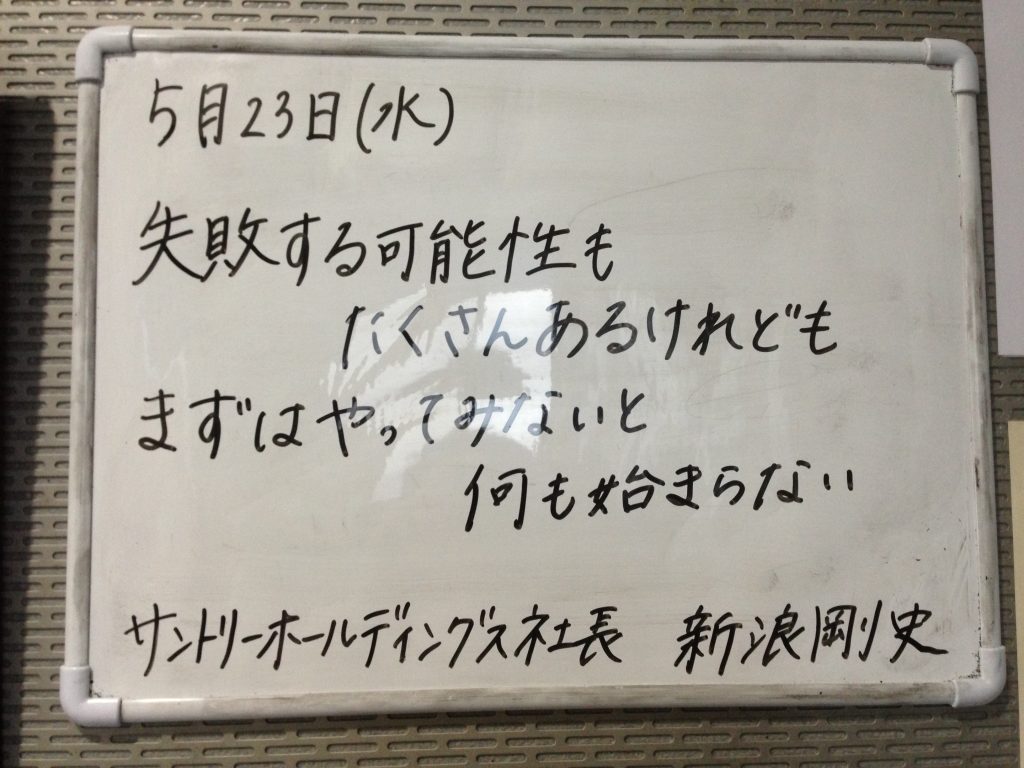 5月23日(水)
失敗する可能性も
たくさんあるけれども
まずはやってみないと
何も始まらない
サントリーホールディングス社長 新浪剛史